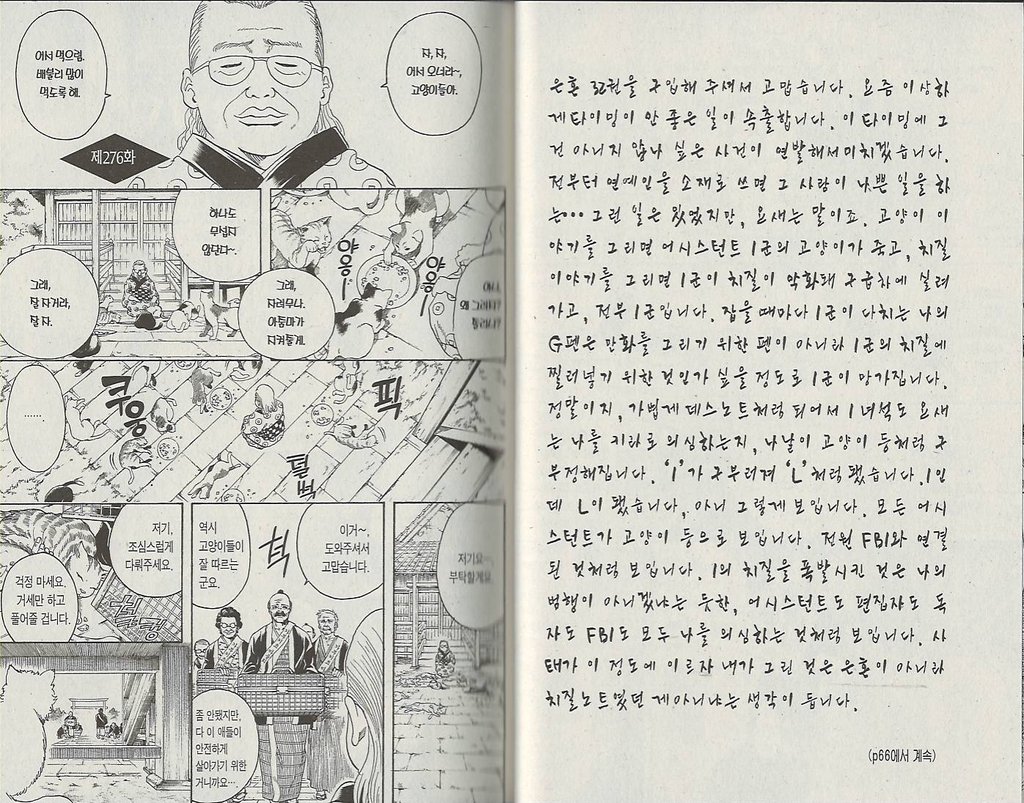 자, 자,
어서 오너라~,
고양이들아.
어서 먹으렴.
배불리 많이
먹도록 해.
제276화
야옹―
야옹―
하나도
무섭지
않단다~.
그래,
자려무나.
아줌마가
지켜줄게.
그래,
잘 자거라,
잘 자.
픽
털썩
쿠웅
……
저기요~
부탁할게요.
이거~,
도와주셔서
고맙습니다.
척
역시
고양이들이
잘 따르는
군요.
좀 안됐지만,
다 이 애들이
안전하게
살아가기 위한
거니까요…
저기,
조심스럽게
다뤄주세요.
걱정 마세요.
거세만 하고
풀어줄 겁니다.
은혼 32권을 구입해 주셔서 고맙습니다. 요즘 이상하
게 타이밍이 안 좋은 일이 속출합니다. 이 타이밍에 그
건 아니지 않나 싶은 사건이 연발해서 미치겠습니다.
전부터 연예인을 소재로 쓰면 그 사람이 나쁜 일을 하
는… 그런 일은 있었지만, 요새는 말이죠. 고양이 이
야기를 그리면 어시스턴트 I군의 고양이가 죽고, 치질
이야기를 그리면 I군이 치질이 악화돼 구급차에 실려
가고, 전부 I군입니다. 잡을 때마다 I군이 다치는 나의
G펜은 만화를 그리기 위한 펜이 아니라 I군의 치질에
찔러넣기 위한 것인가 싶을 정도로 I군이 망가집니다.
정말이지, 가볍게 데스노트처럼 되어서 I녀석도 요새
는 나를 키라로 의심하는지, 나날이 고양이 등처럼 구
부정해집니다. 'I'가 구부러져 'L'처럼 됐습니다. I인
데 L이 됐습니다, 아니 그렇게 보입니다. 모든 어시
스턴트가 고양이 등으로 보입니다. 전원 FBI와 연결
된 것처럼 보입니다. I의 치질을 폭발시킨 것은 나의
범행이 아니겠냐는 듯한, 어시스턴트도 편집자도 독
자도 FBI도 모두 나를 의심하는 것처럼 보입니다. 사
태가 이 정도에 이르자 내가 그린 것은 은혼이 아니라
치질노트였던 게 아니냐는 생각이 듭니다.
(p66에서 계속)